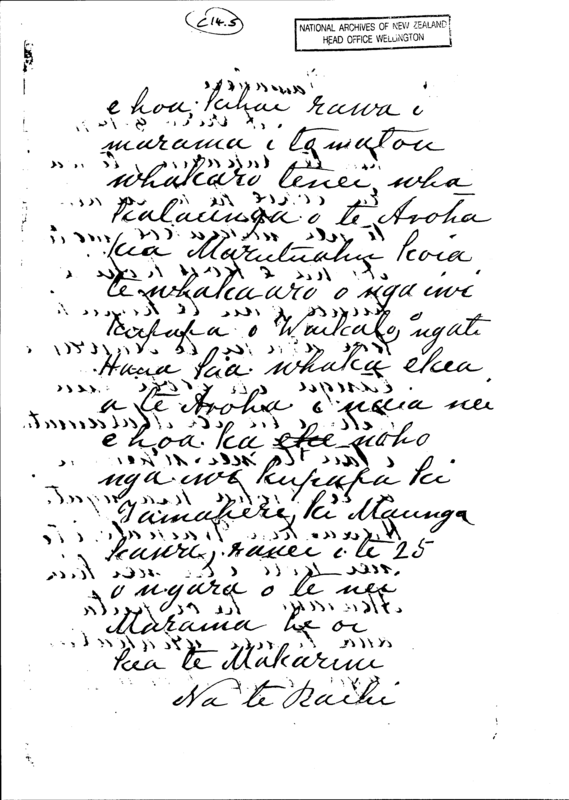 C14.5
NATIONAL ARCHIVES OF NEW ZEALAND
HEAD OFFICE WELLINGTON
e hoa kahae rawa i
marama i to matou
whakaro tenei, wha
kataunga o te Aroha
kia Marutuahu koia
te whakaaro o nga iwi
kupapa o Waikato, ngati
Haua kia whaka ekea
a te Aroha i naia nei
e hoa ka eke noho
nga iwi kupapa ki
Tamahere, ki Maunga
kawa, ranei i te 25
o ngara o te nei
Marama he oi
kia te Makarini
Na te